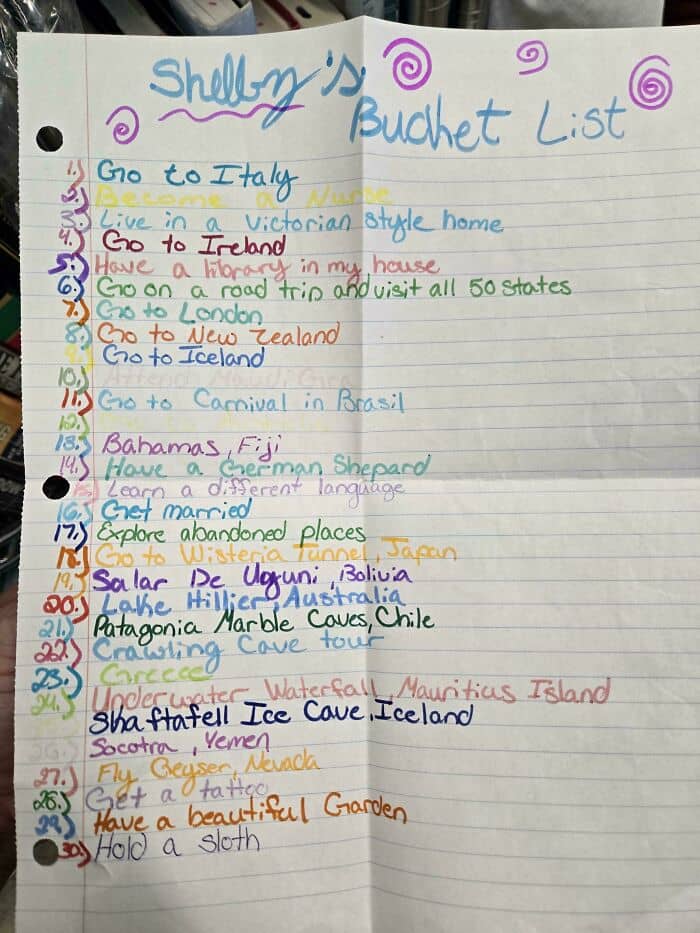 Shelby's
Bucket List
1.) Go to Italy
2.) Become a Nurse
3.) Live in a Victorian style home
4.) Go to Ireland
5.) Have a library in my house
6.) Go on a road trip and visit all 50 states
7.) Go to London
8.) Go to New Zealand
9.) Go to Iceland
10.) Attend Maudi Gra
11.) Go to Carnival in Brasil
12.)
13.) Bahamas, Fiji
14.) Have a German Shepard
15.) Learn a different language
16.) Get married
17.) Explore abandoned places
18.) Go to Wisteria Tunnel, Japan
19.) Salar De Uguni, Bolivia
20.) Lake Hillier, Australia
21.) Patagonia Marble Caves, Chile
22.) Crawling Cave tour
23.) Greece
24.) Underwater Waterfall, Mauritius Island
Skaftafell Ice Cave, Iceland
26.) Socotra, Yemen
27.) Fly Geyser, Nevada
28.) Get a tattoo
29.) Have a beautiful Garden
30.) Hold a sloth